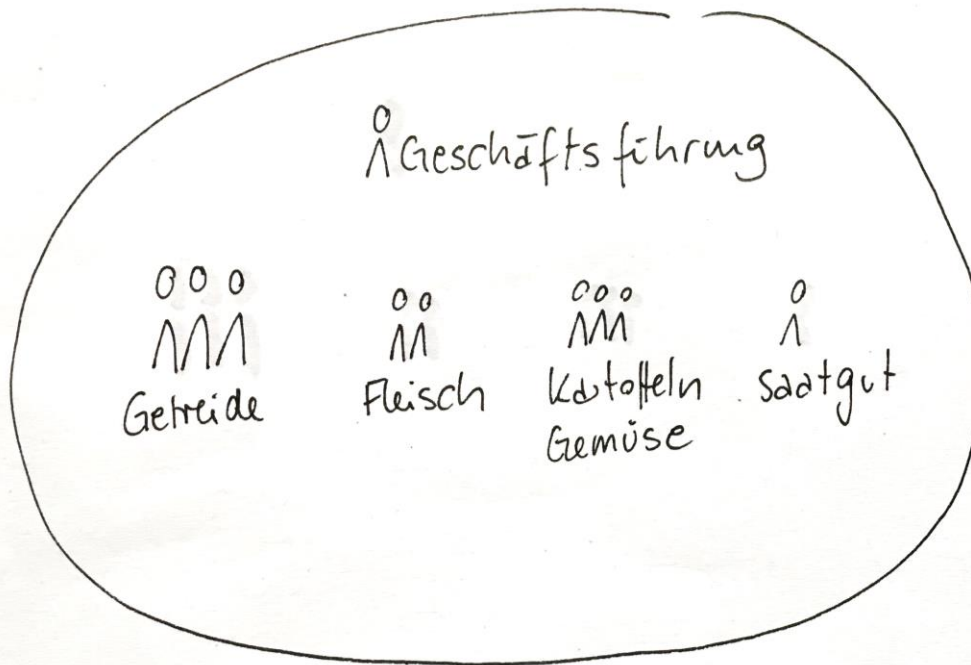 Geschäftsführung
Getreide
Fleisch
Kartoffeln
Gemüse
Saatgut